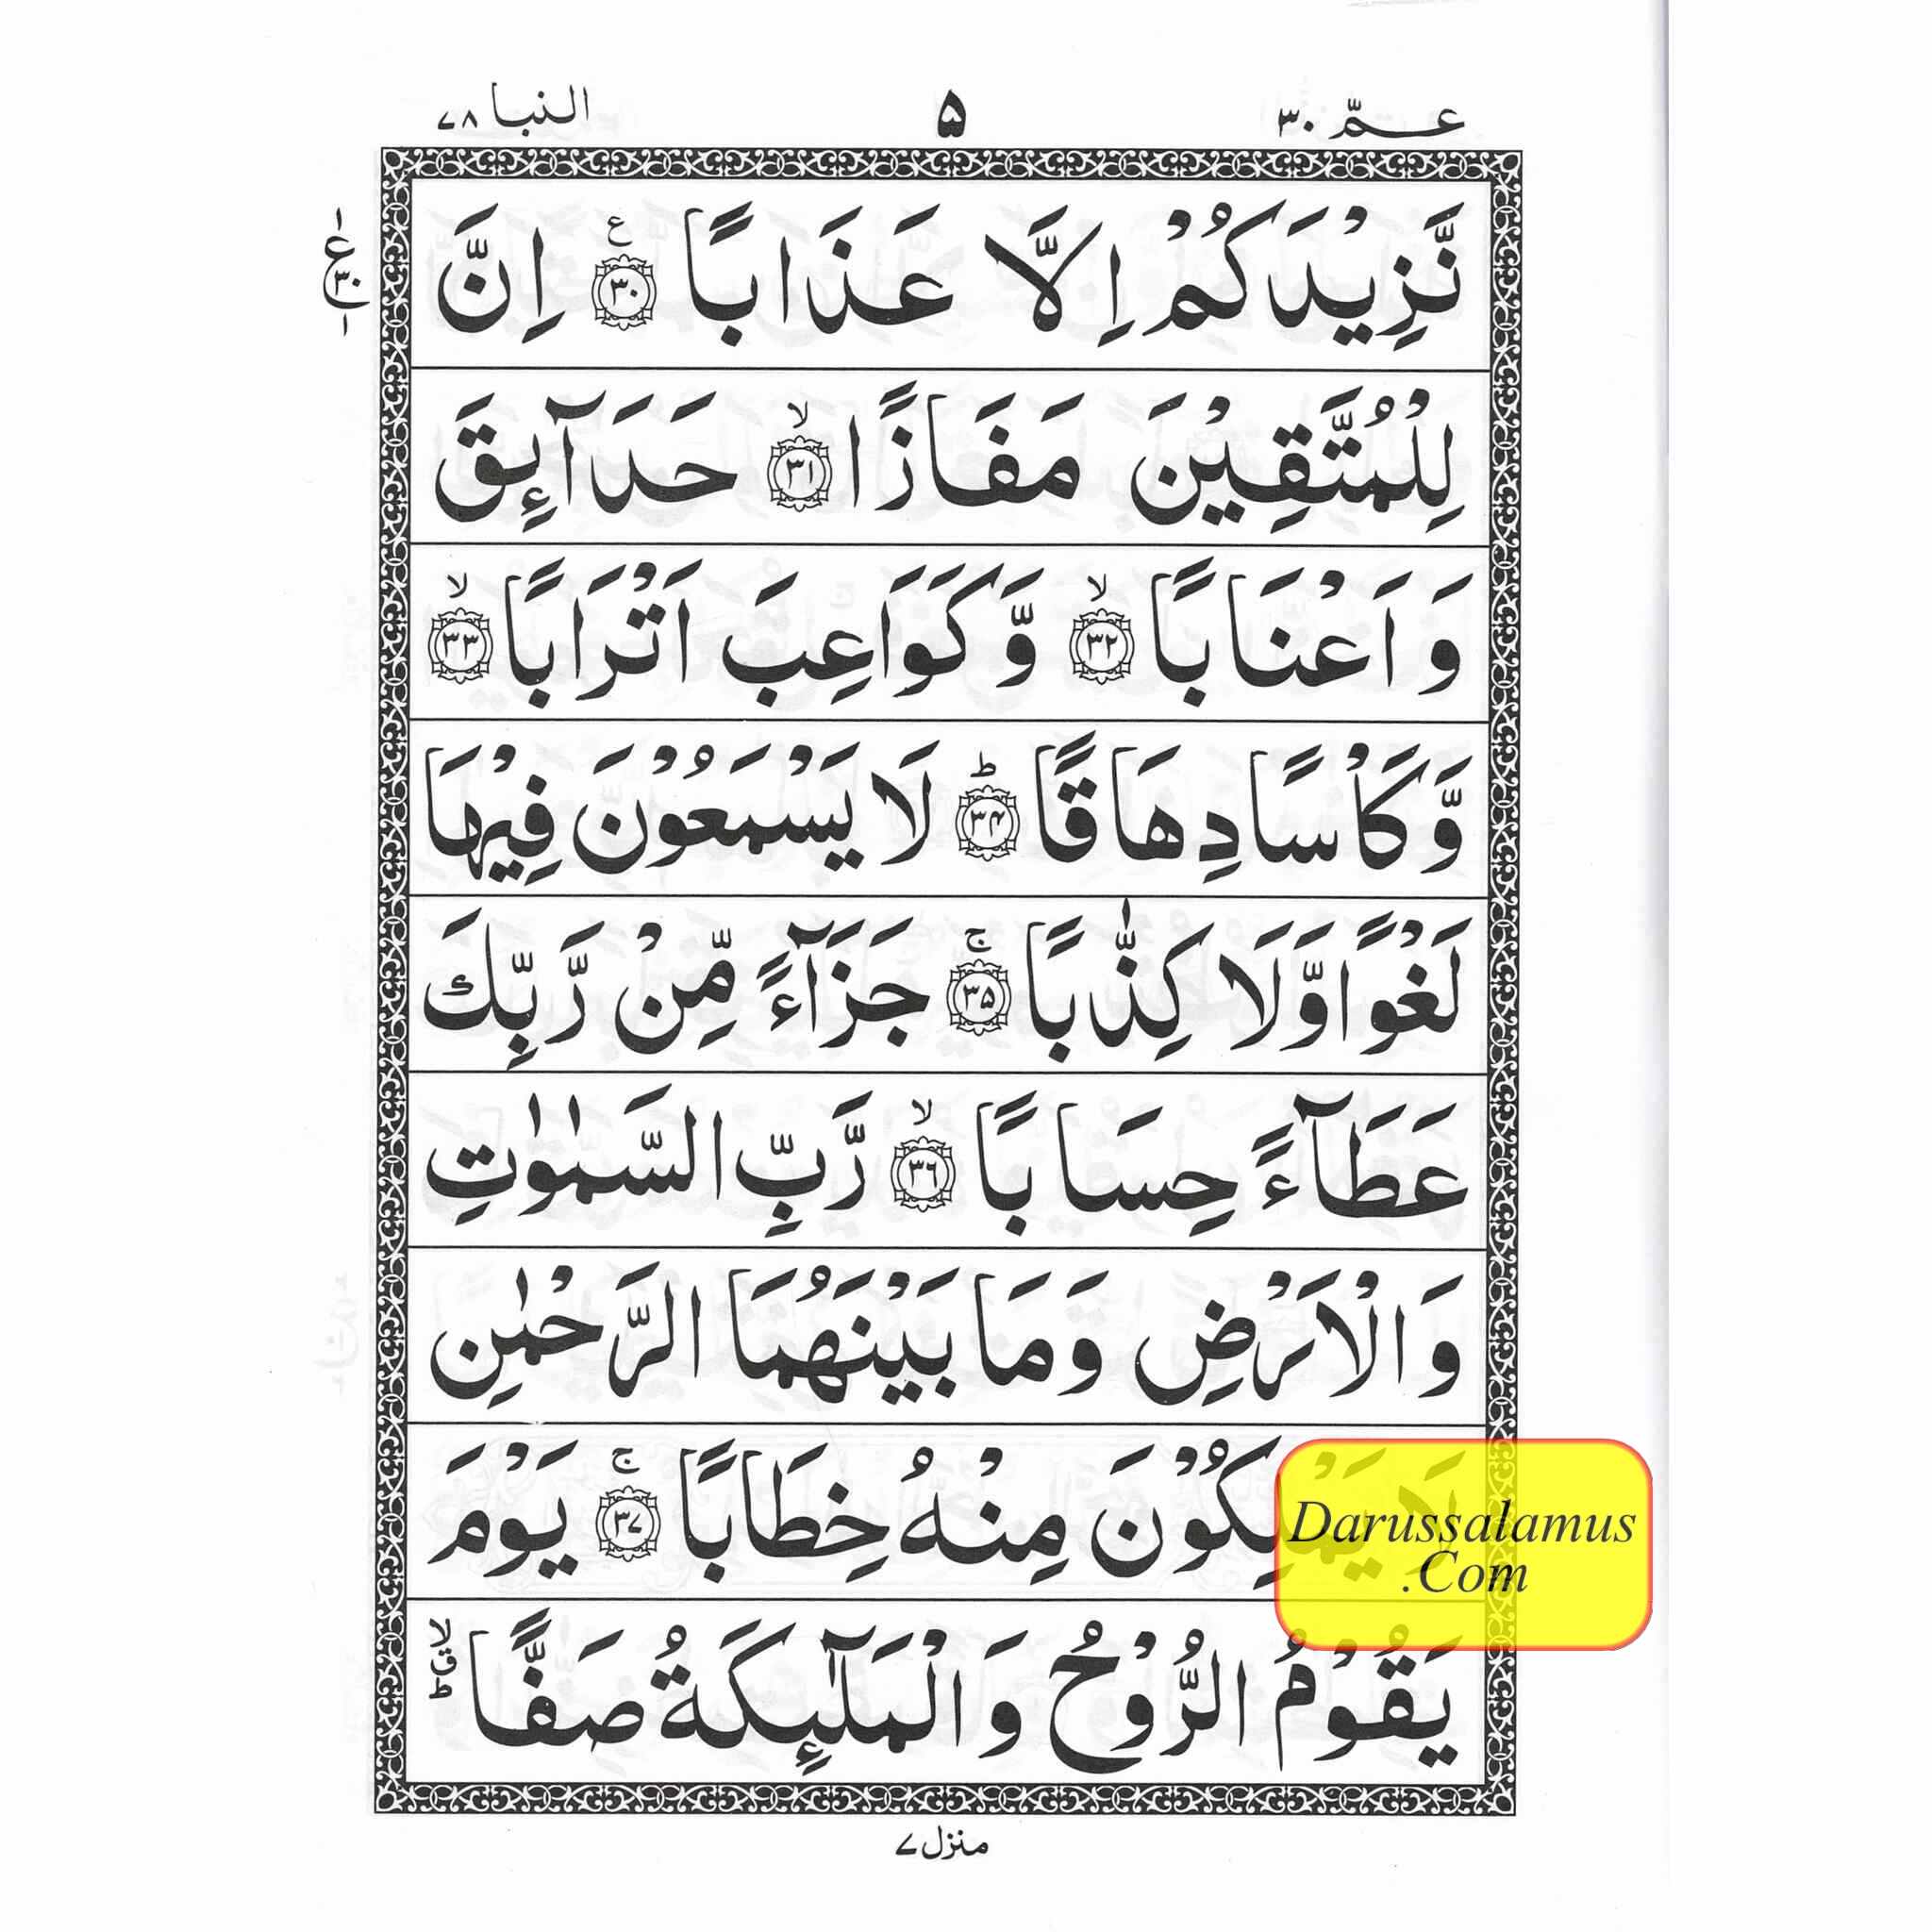 عـمّ ٣٠ ۵ النبا ٧٨
نَّزِيْدَكُمْ اِلَّا عَذَابًا ۝٣٠ ع اِنَّ
١ ع ٣٠ ١
لِلْمُتَّقِيْنَ مَفَازًا ۝٣١ لا حَدَآئِقَ
وَاَعْنَابًا ۝٣٢ لا وَّكَوَاعِبَ اَتْرَابًا ۝٣٣ لا
وَّكَاْسًا دِهَاقًا ۝٣۴ ط لَا يَسْمَعُوْنَ فِيْهَا
لَغْوًا وَّلَا كِذّٰبًا ۝٣۵ ج جَزَآءً مِّنْ رَّبِّكَ
عَطَآءً حِسَابًا ۝٣٦ لا رَّبِّ السَّمٰوٰتِ
وَالْاَرْضِ وَمَا بَيْنَهُمَا الرَّحْمٰنِ
لَا يَمْلِكُوْنَ مِنْهُ خِطَابًا ۝٣٧ ج يَوْمَ
Darussalamus
.Com
يَقُوْمُ الرُّوْحُ وَالْمَلٰٓئِكَةُ صَفًّا لا ق ط
منزل ٧